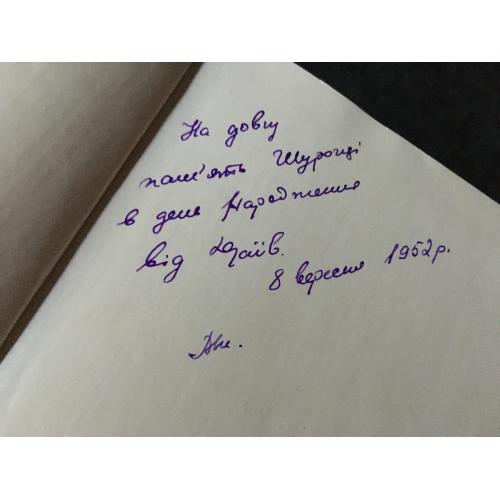 На довгу
пам'ять Шурочці
в день народження
від
8 вересня 1952 р.